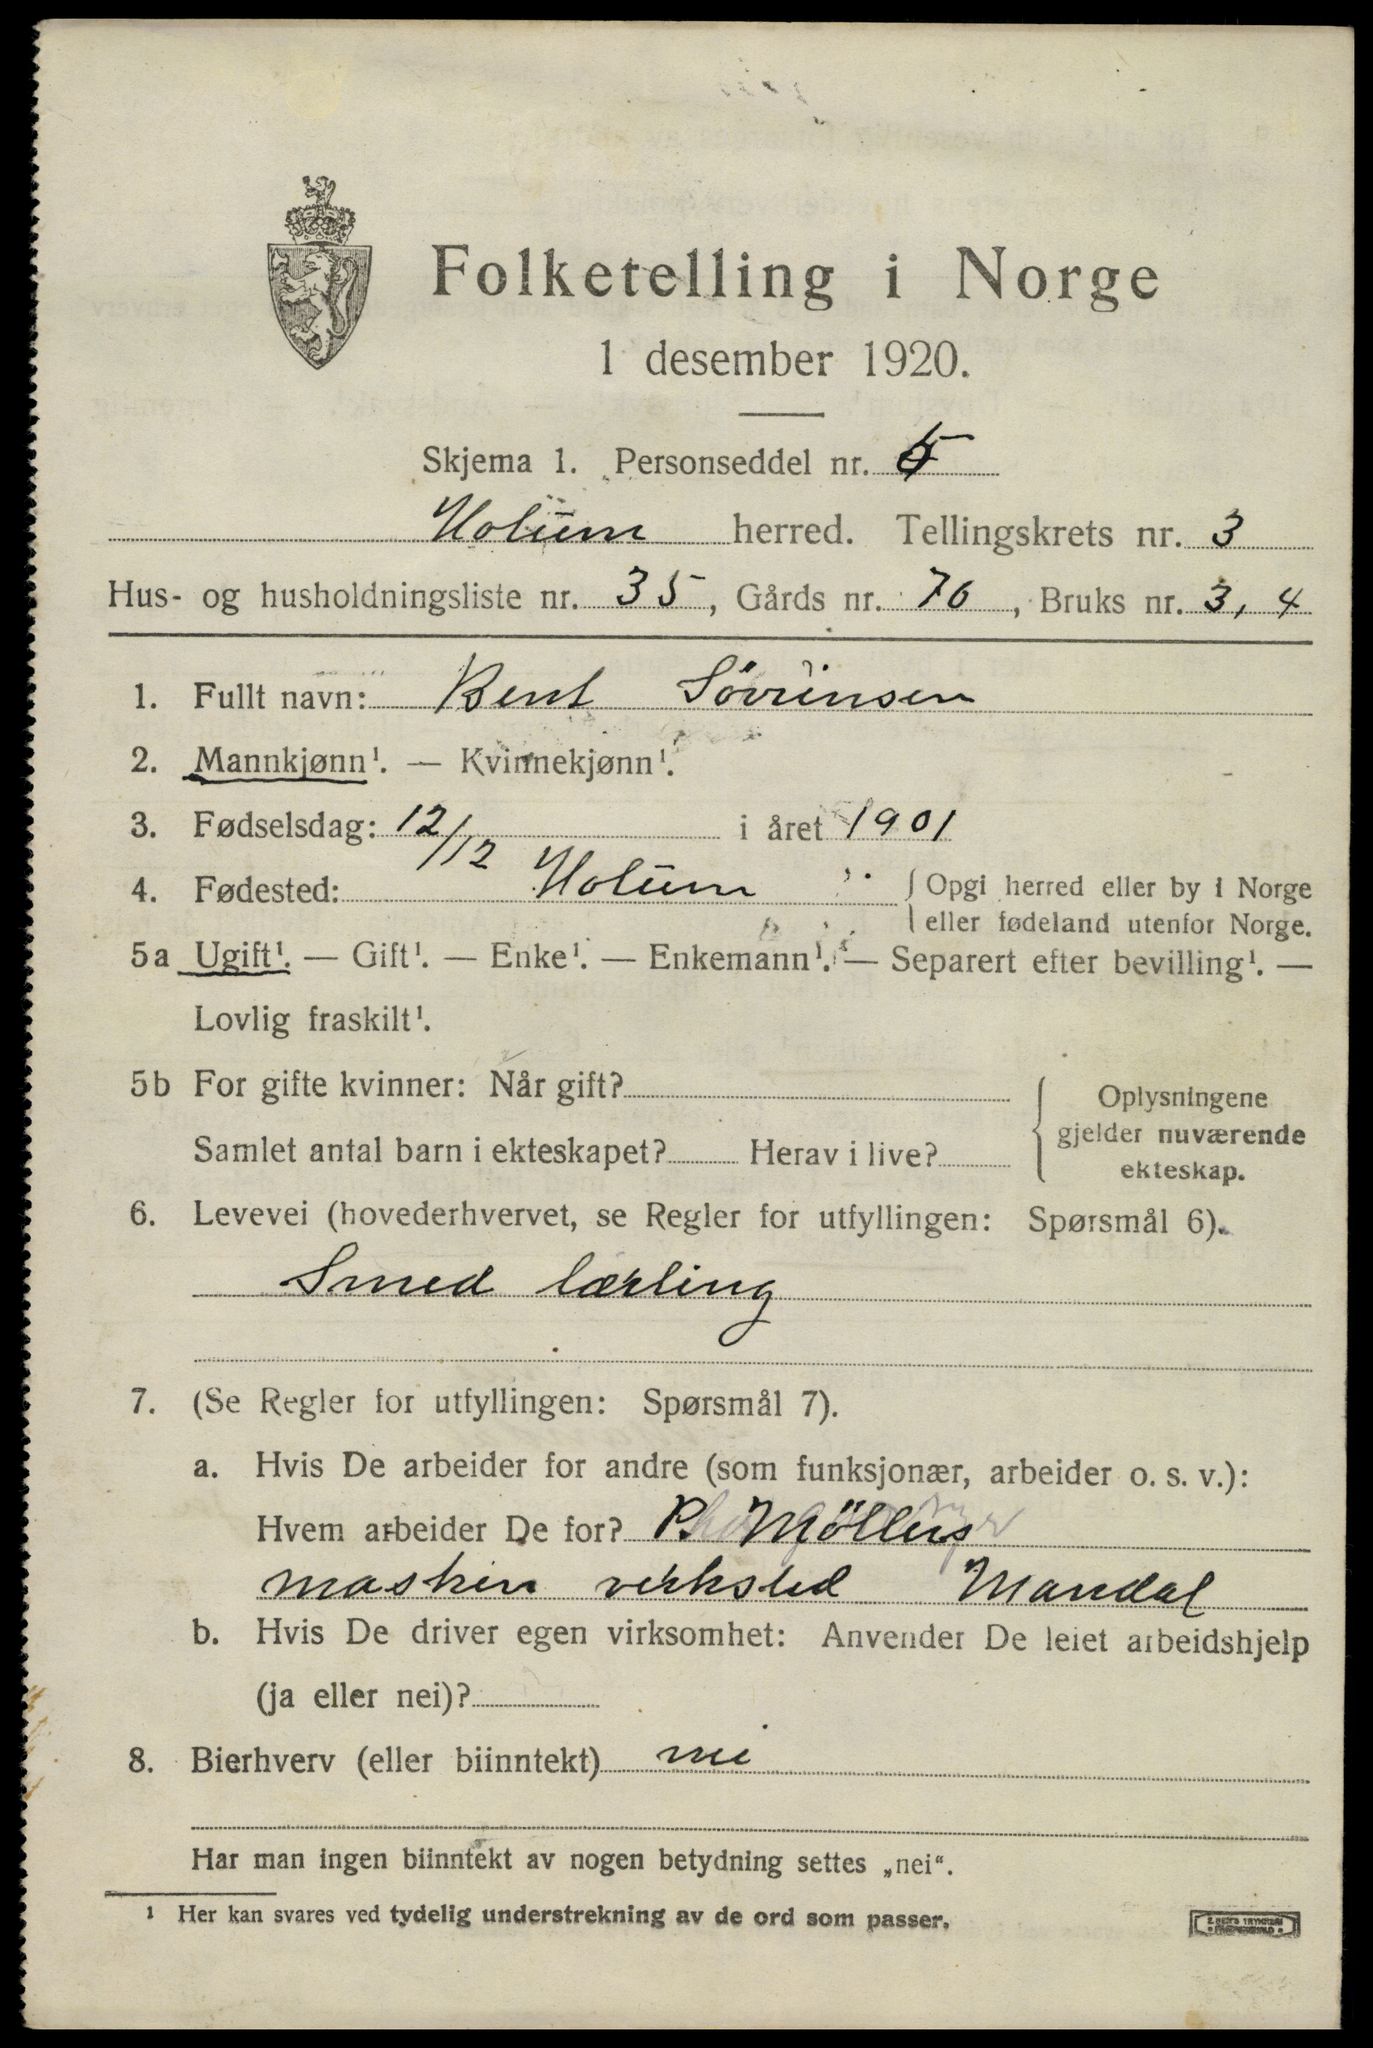 Folketelling i Norge
1 desember 1920.
Skjema 1. Personseddel nr. 5
Holum herred. Tellingskrets nr. 3
Hus- og husholdningsliste nr. 35, Gårds nr. 76, Bruks nr. 3, 4
1. Fullt navn: Bent Sörensen
2. Mannkjønn¹. — Kvinnekjønn¹.
3. Fødselsdag: 12/12 i året 1901
4. Fødested: Holum { Opgi herred eller by i Norge
eller fødeland utenfor Norge.
5a Ugift¹. — Gift¹. — Enke¹. — Enkemann¹. — Separert efter bevilling¹. —
Lovlig fraskilt¹.
5b For gifte kvinner: Når gift?
Samlet antal barn i ekteskapet? Herav i live?
Oplysningene
gjelder nuværende
ekteskap.
6. Levevei (hovederhvervet, se Regler for utfyllingen: Spørsmål 6).
Smed lærling
7. (Se Regler for utfyllingen: Spørsmål 7).
a. Hvis De arbeider for andre (som funksjonær, arbeider o. s. v.):
Hvem arbeider De for? P. Möllers
maskin verksted Mandal
b. Hvis De driver egen virksomhet: Anvender De leiet arbeidshjelp
(ja eller nei)?
8. Bierhverv (eller biinntekt) nei
Har man ingen biinntekt av nogen betydning settes „nei“.
¹ Her kan svares ved tydelig understrekning av de ord som passer.